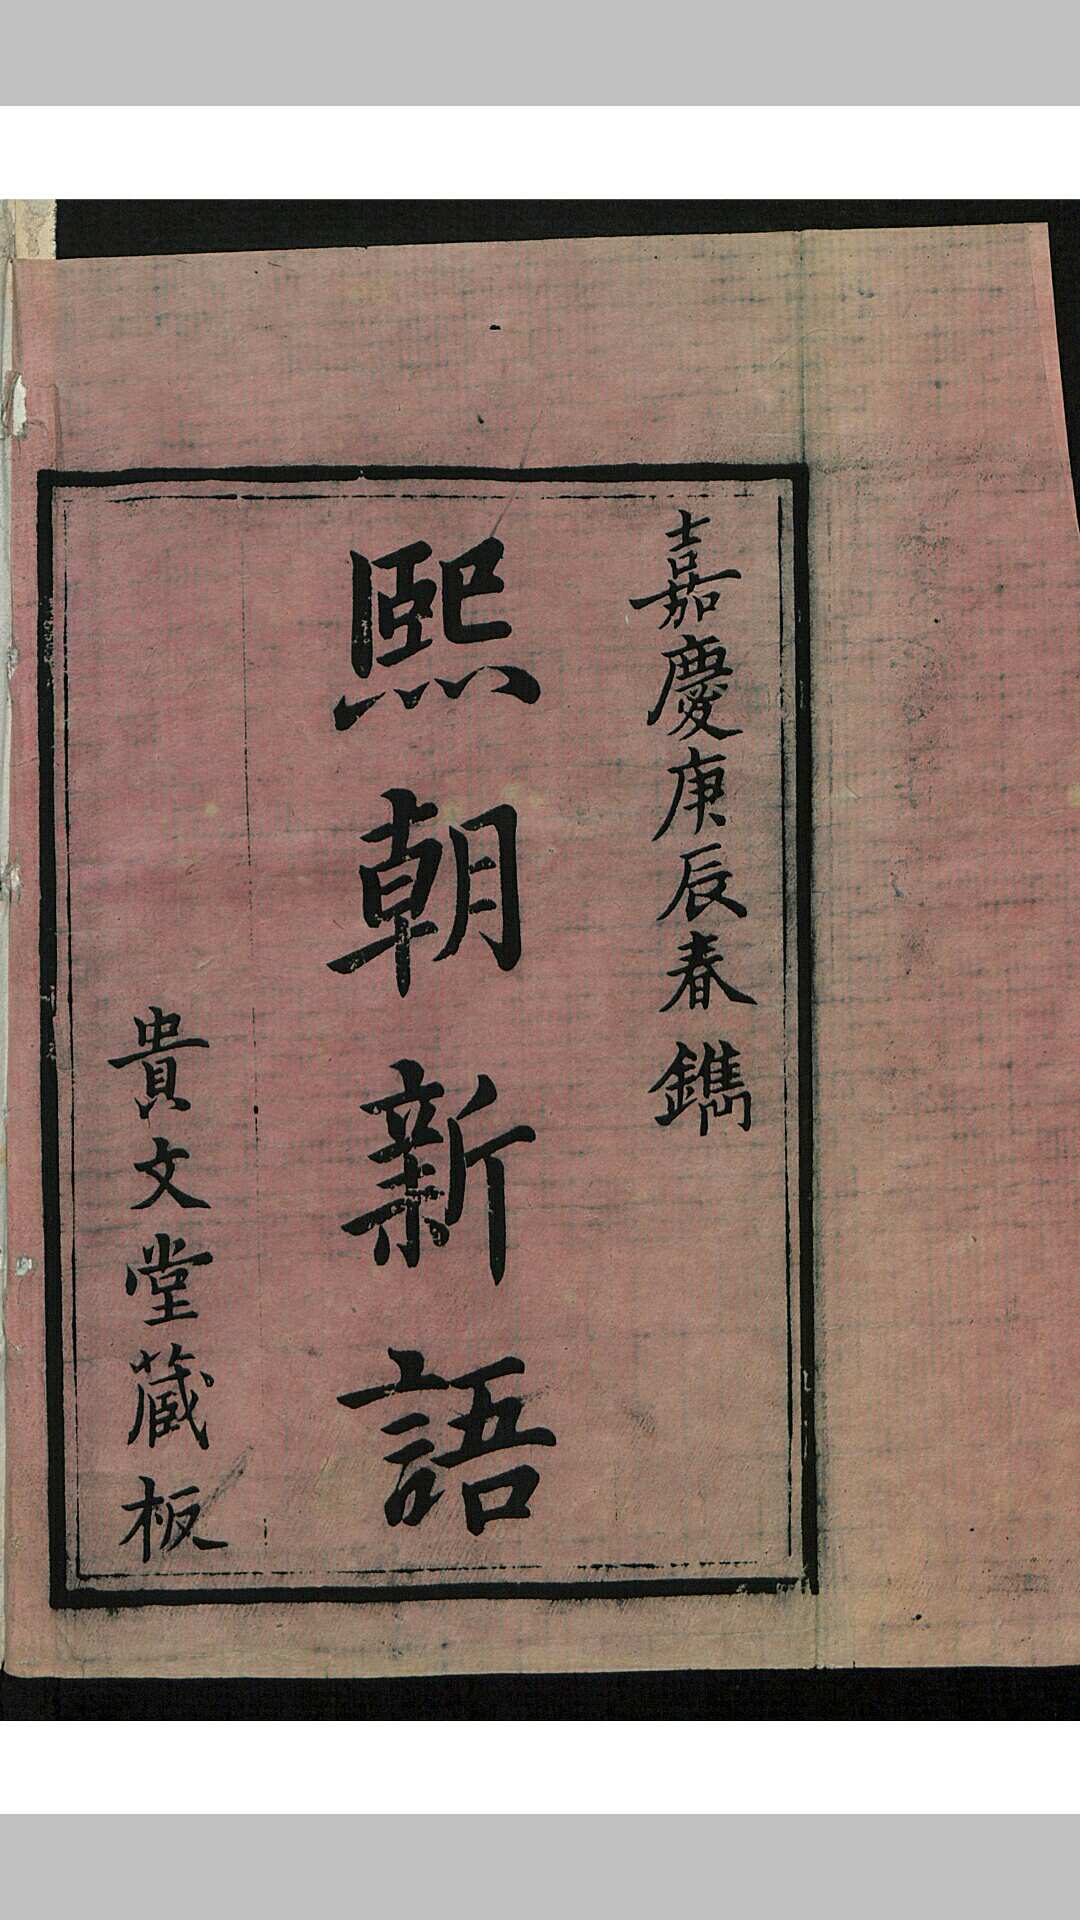 嘉慶庚辰春鐫
熙朝新語
貴文堂蔵板